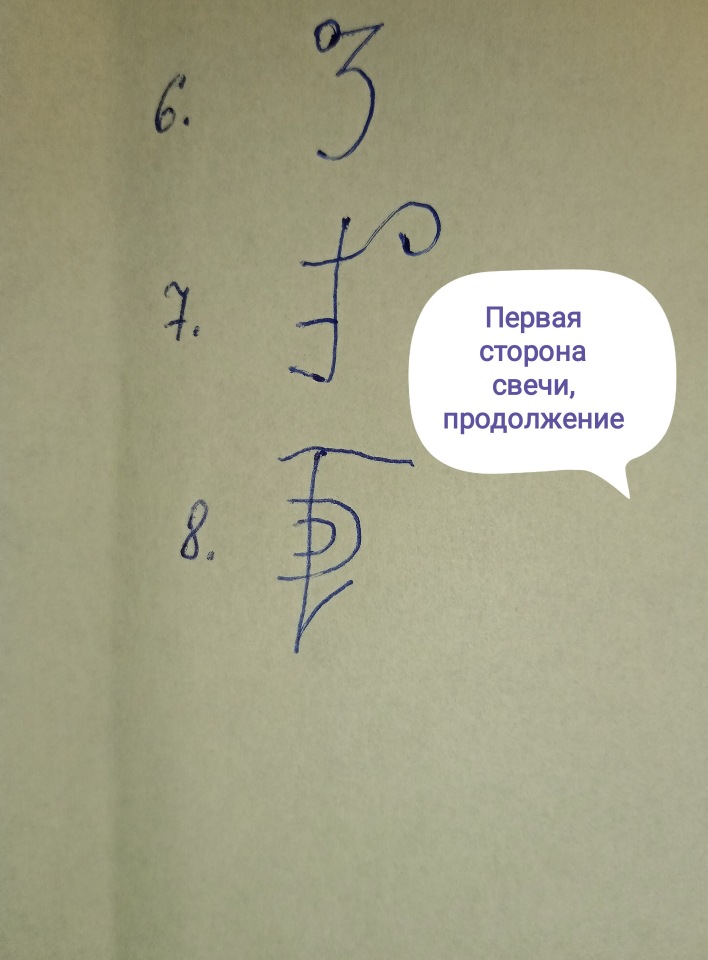 6.
7.
Первая
сторона
свечи,
продолжение
8.